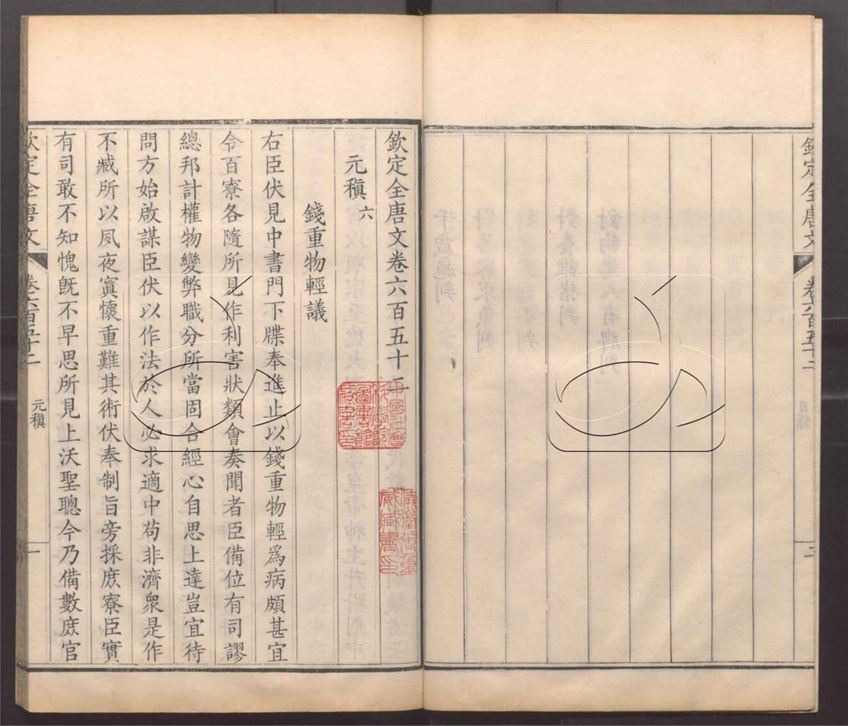 欽定全唐文
卷六百五十二
目錄
二
欽定全唐文卷六百五十二
元稹 六
錢重物輕議
右臣伏見中書門下牒奉進止以錢重物輕爲病頗甚宜
令百寮各隨所見作利害狀類會奏聞者臣備位有司謬
總邦計權物變弊職分所當固合經心自思上達豈宜待
問方始啟謀臣伏以作法於人必求適中苟非濟衆是作
不臧所以夙夜寘懷重難其術伏奉制旨旁採庶寮臣實
有司敢不知愧旣不早思所見上沃聖聰今乃備數庶官
欽定全唐文
卷六百五十二
元稹
一